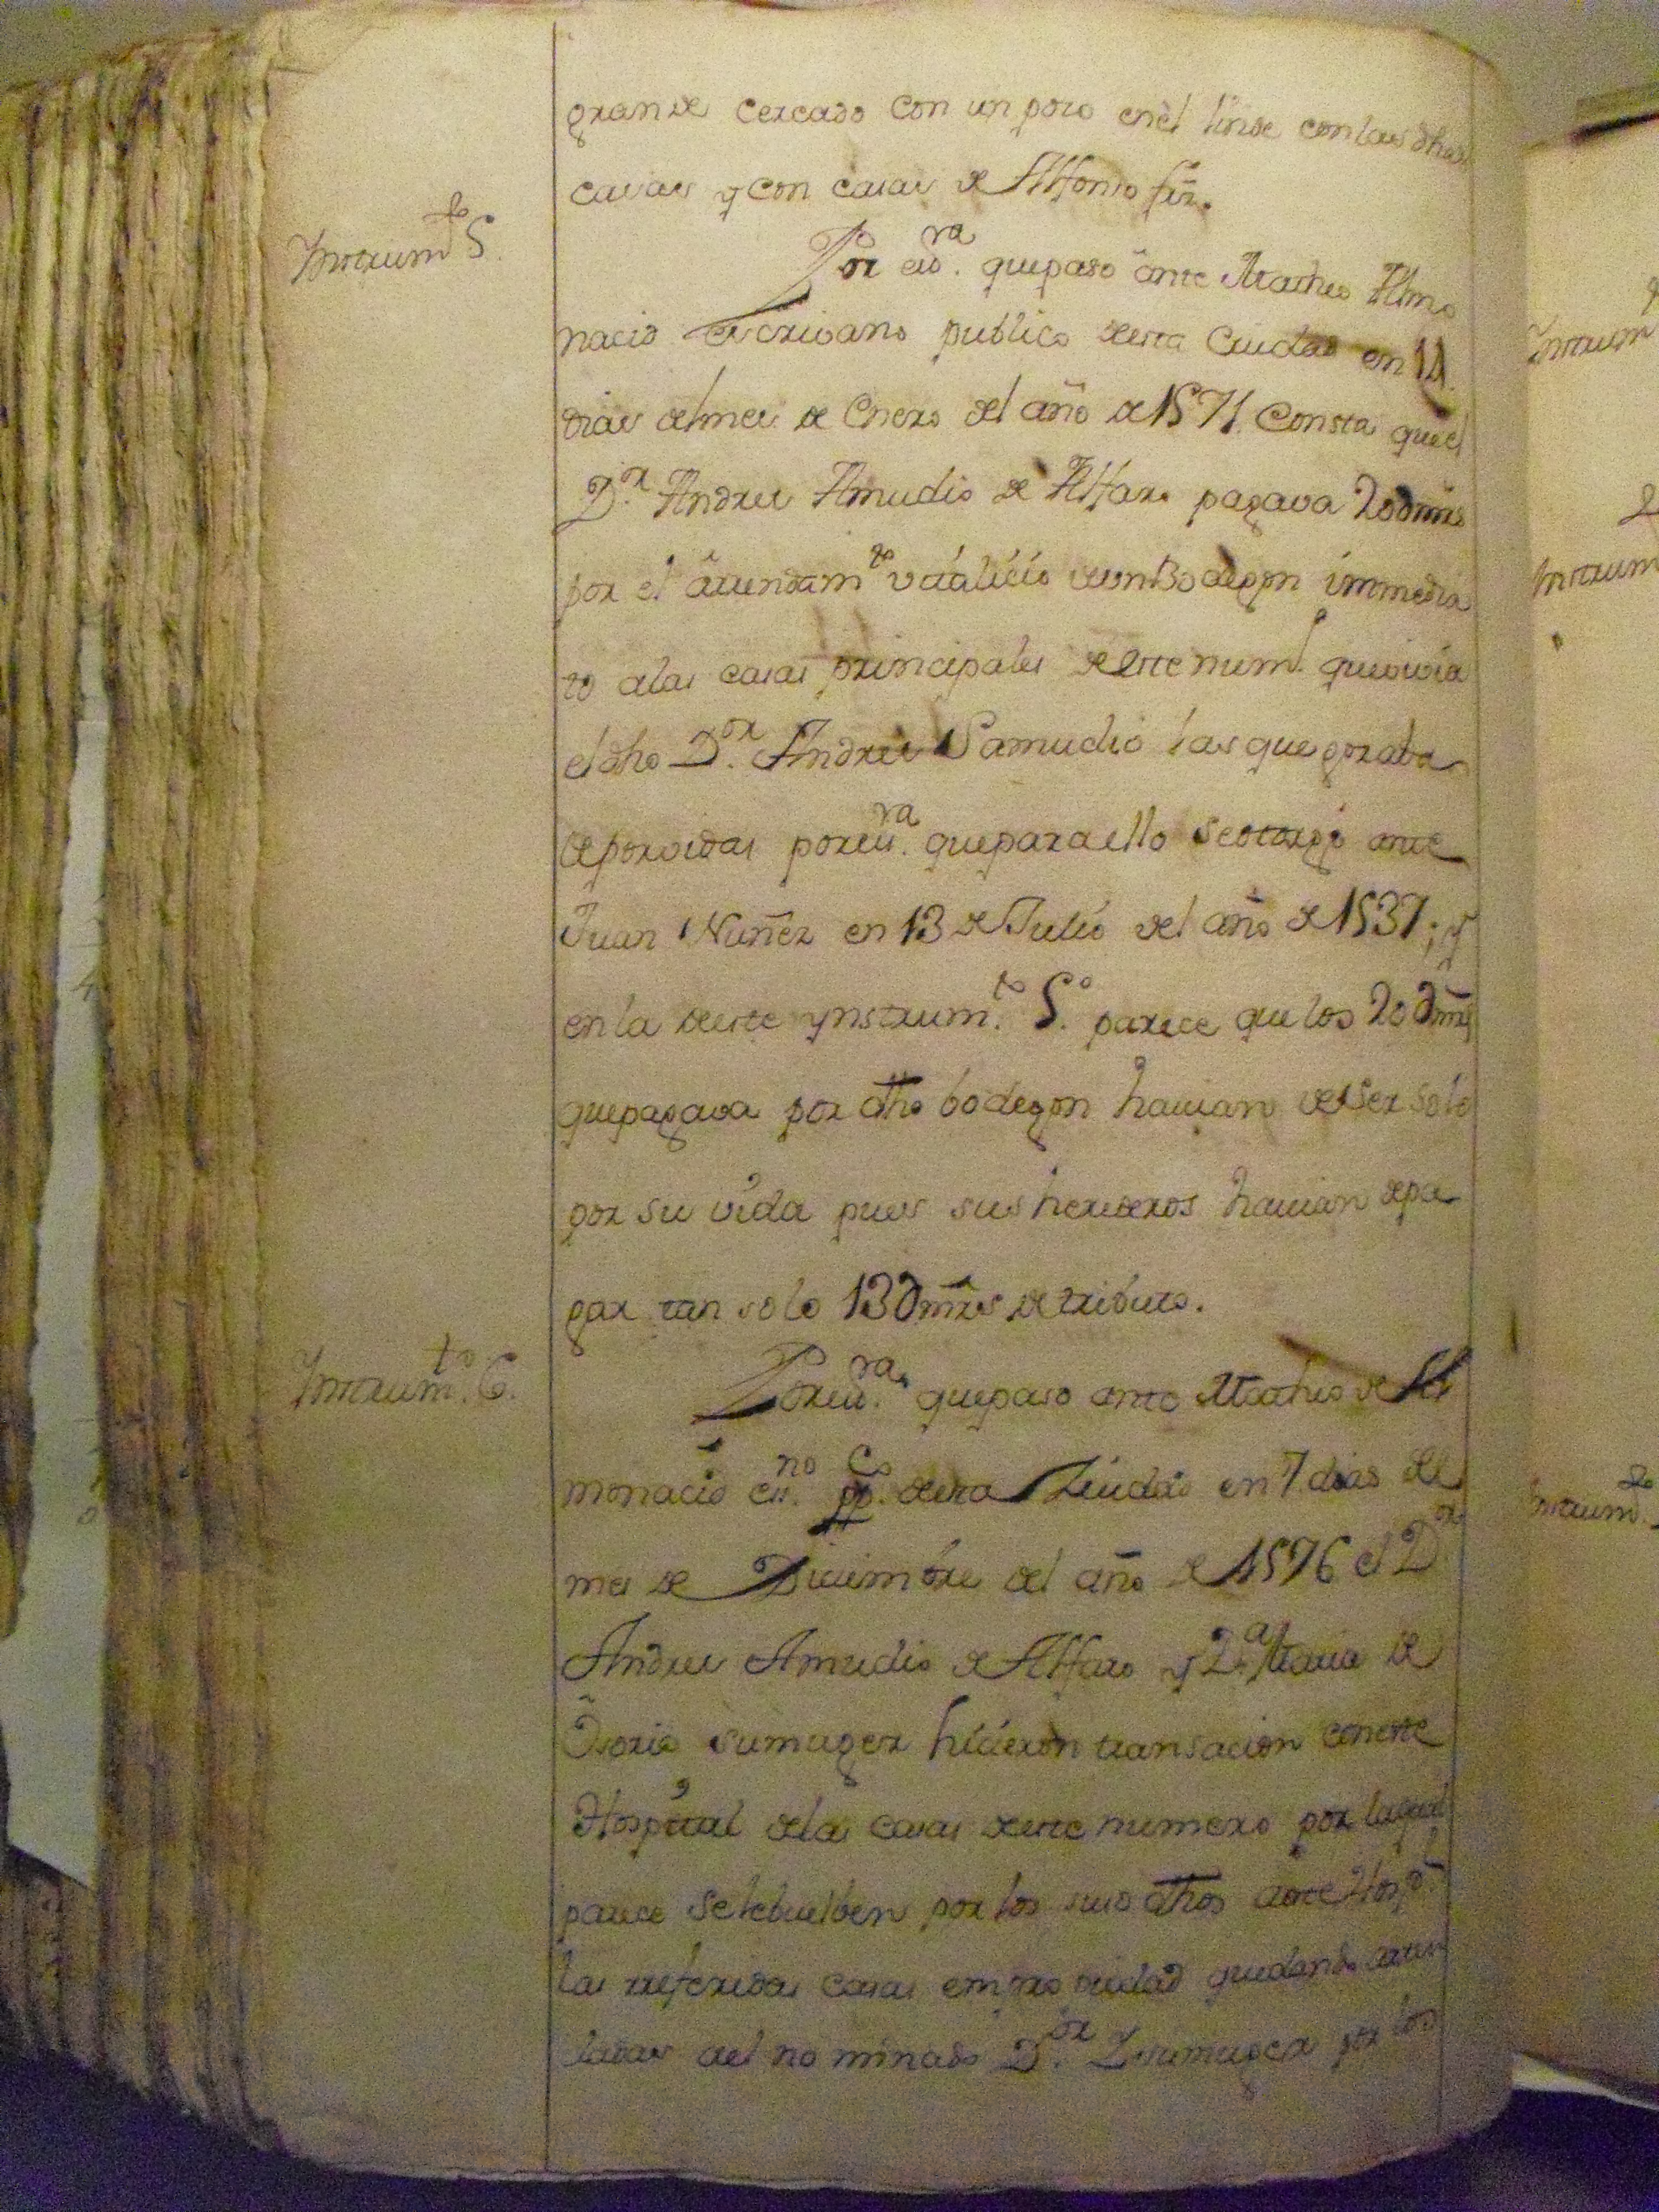 grande cercado con un pozo en el linde con las dhas
casas y con casas de Alfonso frz.
Instrum.to 5.
Por es.ra que paso ante Matheo Almo
nacid escrivano publico desta Ciudad en 14
dias del mes de Enero del año de 1571. Consta que el
D.r Andres Amudio de Alfaro pagava 20 d mrs
por el arrendam.to vitalicio de un Bodegon immedia
to a las casas principales de este num.o que vivia
el dho D.or Andres Samudio las que gozaba
de por vidas por es.ra que para ello se otorgó ante
Juan Nuñez en 13 de Julio del año de 1537; y
en la de este ynstrum.to 5.o parece que los 20 d mrs
que pagava por dho bodegon havian de ser solo
por su vida pues sus herederos havian de pa
gar tan solo 13 d mrs de tributo.
Instrum.to 6.
Por es.ra que paso ante Matheo de Al
monacid es.no pp.co desta Ziudad en 7 dias del
mes de Diciembre del año de 1576 el D.or
Andres Amudio de Alfaro y D.a Maria de
Osorio su muger hicieron transacion con este
Hospital de las casas de este numero por la qual
parece se lebuelben por los suso dhos a este Hosp.l
las rreferidas casas en propiedad quedando
ladas al nominado D.or Y su muger por los
Instrum
Instrum
Instrum.to